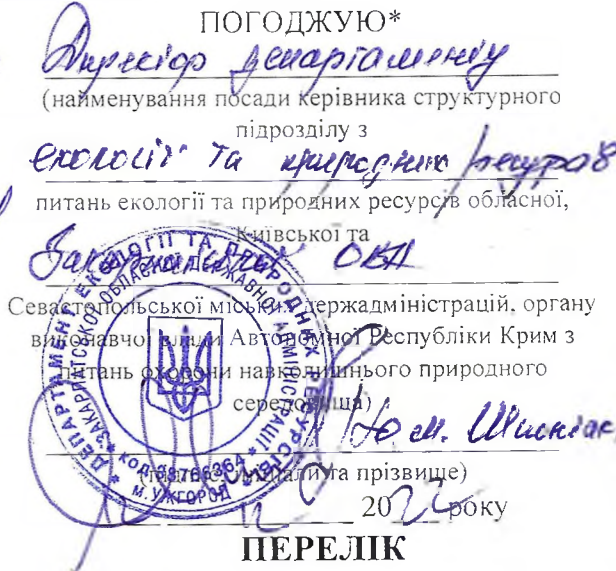 ПОГОДЖУЮ*
Директор департаменту
(найменування посади керівника структурного
підрозділу з
екології та природних ресурсів
питань екології та природних ресурсів обласної,
Київської та
Закарпатської ОВА
Севастопольської міських держадміністрацій, органу
виконавчої влади Автономної Республіки Крим з
питань охорони навколишнього природного
середовища)
Ю.М. Шпонтак
(підпис, ініціали та прізвище)
12 2022 року
ДЕПАРТАМЕНТ ЕКОЛОГІЇ ТА ПРИРОДНИХ РЕСУРСІВ
ЗАКАРПАТСЬКОЇ ОБЛАСНОЇ ДЕРЖАВНОЇ АДМІНІСТРАЦІЇ
м. УЖГОРОД
ПЕРЕЛІК